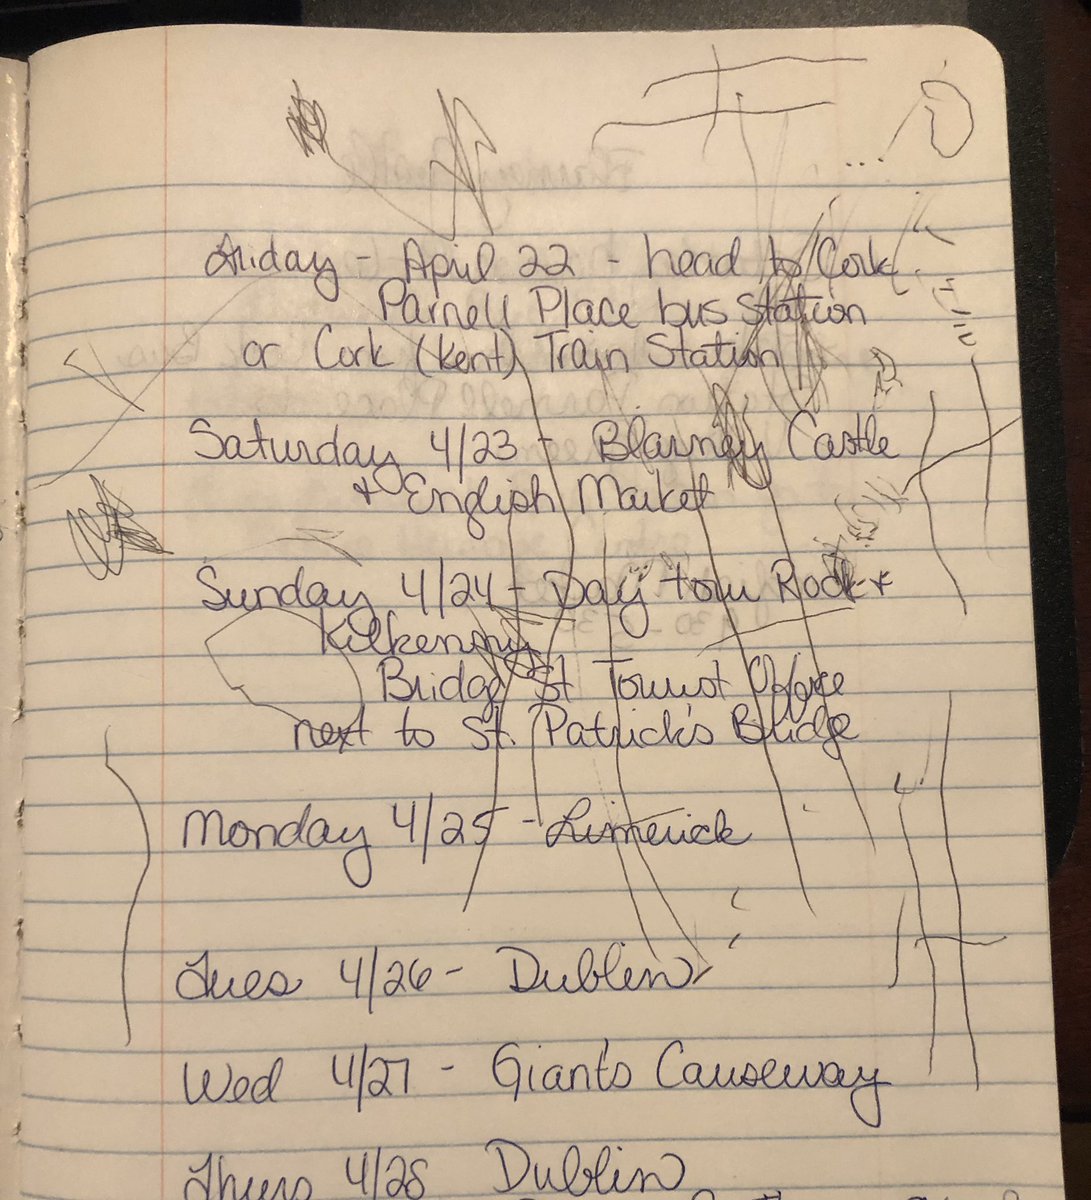 Friday - April 22 - head to Cork
Parnell Place bus station
or Cork (Kent) Train Station
Saturday 4/23 - Blarney Castle
+ English Market
Sunday 4/24 - Day tour Rock +
Kilkenny
Bridge St Tourist Office
next to St. Patrick's Bridge
Monday 4/25 - Limerick
Tues 4/26 - Dublin
Wed 4/27 - Giants Causeway
Thurs 4/28 Dublin